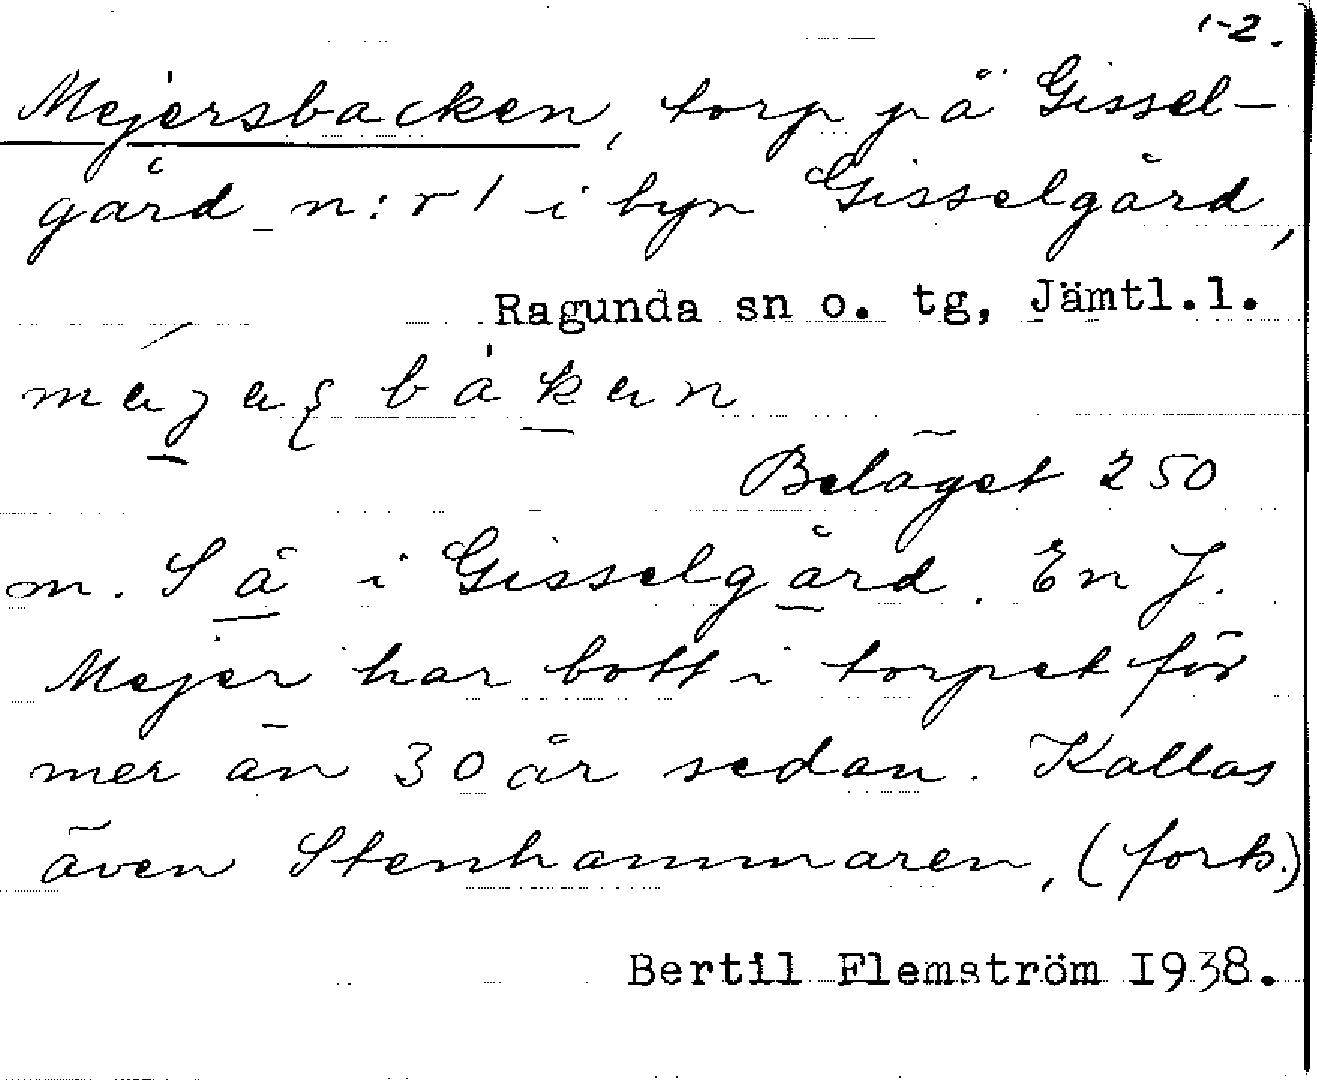 1-2.
Mejersbacken, torp på Gissel-
gård n:r 1 i byn Gisselgård,
Ragunda sn o. tg, Jämtl.l.
Beläget 250
m. S å i Gisselgård. En J.
Mejer har bott i torpet för
mer än 30 år sedan. Kallas
även Stenhammaren, (forts.)
Bertil Flemström 1938.